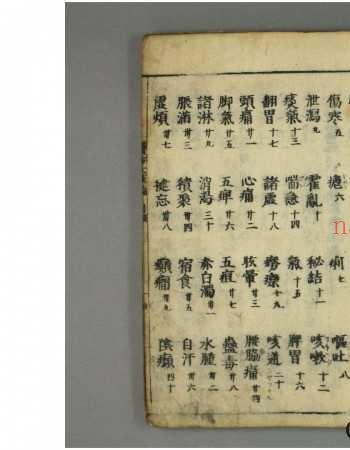 傷寒五 瘧六 痢七 嘔吐八
泄瀉九 霍亂十 秘結十一 咳嗽十二
痰氣十三 喘急十四 氣十五 脾胃十六
翻胃十七 諸虛十八 勞瘵十九 咳逆二十
頭痛廿一 心痛廿二 眩暈廿三 腰脇痛廿四
脚氣廿五 五痺廿六 五疸廿七 蠱毒廿八
諸淋廿九 消渴三十 赤白濁卅一 水腫卅二
脹滿卅三 積聚卅四 宿食卅五 自汗卅六
虛煩卅七 健忘卅八 癲癇卅九 陰㿗四十